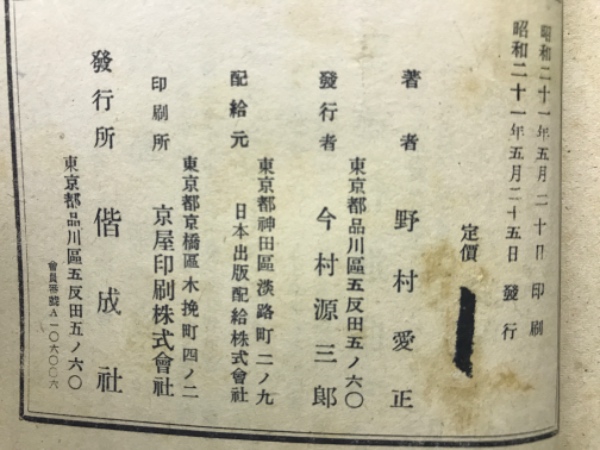 昭和二十一年五月二十日 印刷
昭和二十一年五月二十五日 發行
定價
著者 野村愛正
東京都品川區五反田五ノ六〇
發行者 今村源三郎
東京都神田區淡路町二ノ九
配給元 日本出版配給株式會社
東京都京橋區木挽町四ノ二
印刷所 京屋印刷株式會社
發行所 偕成社
東京都品川區五反田五ノ六〇
會員番號A一〇六〇〇六